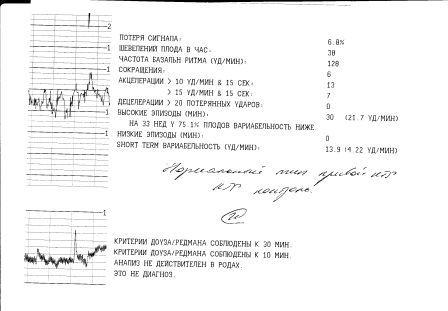 ПОТЕРЯ СИГНАЛА: 6.8%
ШЕВЕЛЕНИЙ ПЛОДА В ЧАС: 38
ЧАСТОТА БАЗАЛЬН РИТМА (УД/МИН): 128
СОКРАЩЕНИЯ: 6
АКЦЕЛЕРАЦИИ > 10 УД/МИН & 15 СЕК: 13
> 15 УД/МИН & 15 СЕК: 7
ДЕЦЕЛЕРАЦИИ > 20 ПОТЕРЯННЫХ УДАРОВ: 0
ВЫСОКИЕ ЭПИЗОДЫ (МИН): 30 (21.7 УД/МИН)
НА 33 НЕД У 75.1% ПЛОДОВ ВАРИАБЕЛЬНОСТЬ НИЖЕ
НИЗКИЕ ЭПИЗОДЫ (МИН): 0
SHORT TERM ВАРИАБЕЛЬНОСТЬ (УД/МИН): 13.9 (4.22 УД/МИН)
Нормальный тип кривой
КРИТЕРИИ ДОУЗА/РЕДМАНА СОБЛЮДЕНЫ К 30 МИН.
КРИТЕРИИ ДОУЗА/РЕДМАНА СОБЛЮДЕНЫ К 10 МИН.
АНАЛИЗ НЕ ДЕЙСТВИТЕЛЕН В РОДАХ.
ЭТО НЕ ДИАГНОЗ.